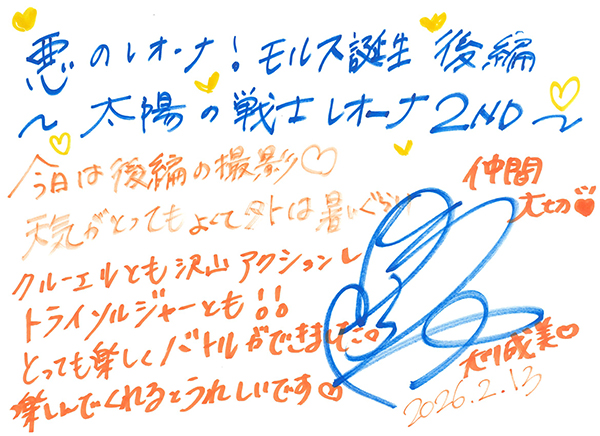 悪のレオーナ!モルス誕生 後編
~太陽の戦士レオーナ2ND~
今日は後編の撮影♡
天気がとってもよくて外は暑いぐらい
クルーエルとも沢山アクションし
トライソルジャーとも!!
とっても楽しくバトルができました。
楽しんでくれるとうれしいです♡
仲間
大切♥
成美♡
2026.2.13